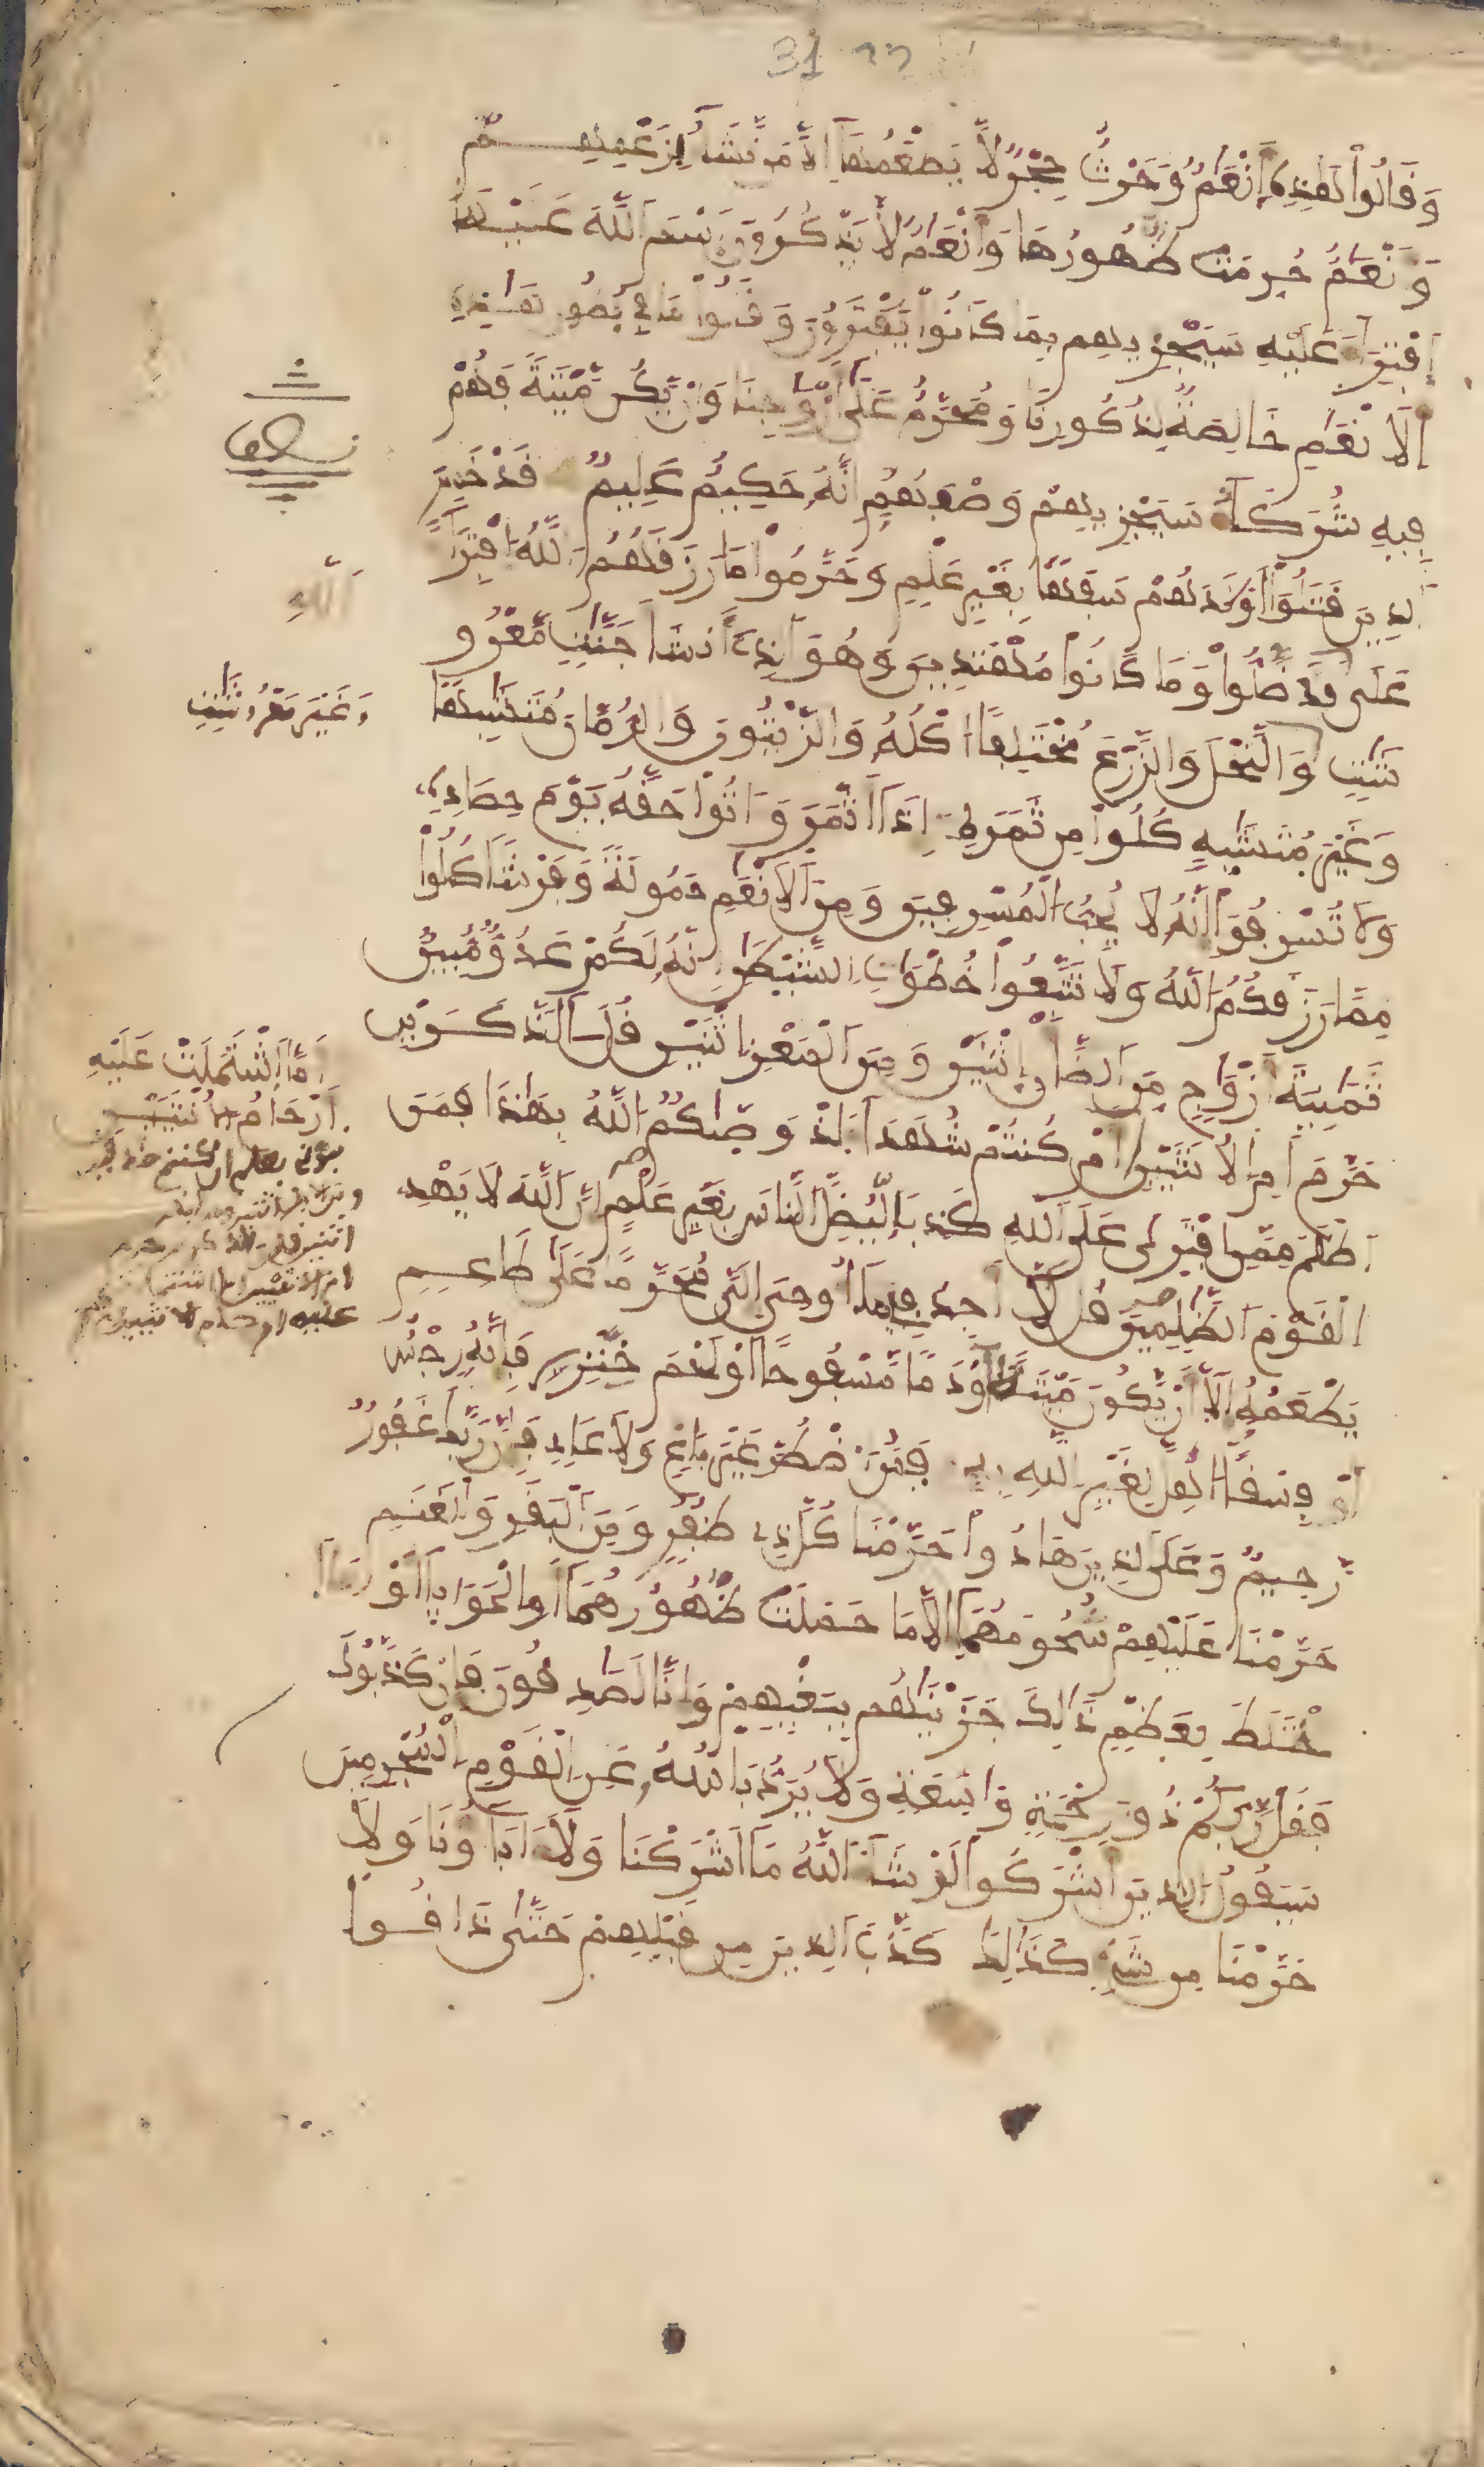 31
وَقَالُوا هَٰذِهِ أَنْعَٰمٌ وَحَرْثٌ حِجْرٌ لَّا يَطْعَمُهَا إِلَّا مَن نَّشَآءُ بِزَعْمِهِمْ
وَنْعَٰمٌ حُرِّمَتْ ظُهُورُهَا وَأَنْعَٰمٌ لَّا يَذْكُرُونَ اسْمَ اللَّهِ عَلَيْهَا
افْتِرَآءً عَلَيْهِ سَيَجْزِيهِم بِمَا كَانُوا يَفْتَرُونَ وَقَالُوا مَا فِي بُطُونِ هَٰذِهِ
الَانْعَٰمِ خَالِصَةٌ لِّذُكُورِنَا وَمُحَرَّمٌ عَلَىٰ أَزْوَٰجِنَا وَإِنْ يَّكُن مَّيْتَةً فَهُمْ
فِيهِ شُرَكَآءُ سَيَجْزِيهِمْ وَصْفَهُمْ إِنَّهُ حَكِيمٌ عَلِيمٌ قَدْ خَسِرَ
الذِينَ قَتَلُوا أَوْلَٰدَهُمْ سَفَهًا بِغَيْرِ عِلْمٍ وَحَرَّمُوا مَا رَزَقَهُمُ اللَّهُ افْتِرَآءً
اللَّهِ
عَلَى قَدْ ضَلُّوا وَمَا كَانُوا مُهْتَدِينَ وَهُوَ الذِي أَنشَأَ جَنَّٰتٍ مَّعْرُو
وَغَيْرَ مَعْرُوشَٰتٍ
شَٰتٍ وَالنَّخْلَ وَالزَّرْعَ مُخْتَلِفًا اكْلُهُ وَالزَّيْتُونَ وَالرُّمَّانَ مُتَشَٰبِهًا
وَغَيْرَ مُتَشَٰبِهٍ كُلُوا مِن ثَمَرِهِ إِذَا أَثْمَرَ وَءَاتُوا حَقَّهُ يَوْمَ حِصَادِهِ
وَلَا تُسْرِفُوا إِنَّهُ لَا يُحِبُّ الْمُسْرِفِينَ وَمِنَ الَانْعَٰمِ حَمُولَةً وَفَرْشًا كُلُوا
مِمَّا رَزَقَكُمُ اللَّهُ وَلَا تَتَّبِعُوا خُطْوَٰتِ الشَّيْطَٰنِ إِنَّهُ لَكُمْ عَدُوٌّ مُّبِينٌ
ثَمَٰنِيَةَ أَزْوَٰجٍ مِّنَ الضَّأْنِ اثْنَيْنِ وَمِنَ الْمَعْزِ اثْنَيْنِ قُلْ ءَالذَّكَرَيْنِ
حَرَّمَ أَمِ الُانثَيَيْنِ أَمْ كُنتُمْ شُهَدَآءَ إِذْ وَصَّٰكُمُ اللَّهُ بِهَٰذَا فَمَنَ
أَمَّا اشْتَمَلَتْ عَلَيْهِ
أَرْحَامُ الُانثَيَيْنِ
اظْلَمُ مِمَّنِ افْتَرَىٰ عَلَى اللَّهِ كَذِبًا لِّيُضِلَّ النَّاسَ بِغَيْرِ عِلْمٍ إِنَّ اللَّهَ لَا يَهْدِي
الْقَوْمَ الظَّٰلِمِينَ قُل لَّا أَجِدُ فِي مَا أُوحِيَ إِلَيَّ مُحَرَّمًا عَلَىٰ طَاعِمٍ
يَطْعَمُهُ إِلَّا أَنْ يَّكُونَ مَيْتَةً أَوْ دَمًا مَّسْفُوحًا أَوْ لَحْمَ خِنزِيرٍ فَإِنَّهُ رِجْسٌ
أَوْ فِسْقًا أُهِلَّ لِغَيْرِ اللَّهِ بِهِ فَمَنُ اضْطُرَّ غَيْرَ بَاغٍ وَلَا عَادٍ فَإِنَّ رَبَّكَ غَفُورٌ
رَّحِيمٌ وَعَلَى الذِينَ هَادُوا حَرَّمْنَا كُلَّ ذِي ظُفُرٍ وَمِنَ الْبَقَرِ وَالْغَنَمِ
حَرَّمْنَا عَلَيْهِمْ شُحُومَهُمَا إِلَّا مَا حَمَلَت ظُّهُورُهُمَا أَوِ الْحَوَايَا أَوْ مَا
خْتَلَطَ بِعَظْمٍ ذَٰلِكَ جَزَيْنَٰهُم بِبَغْيِهِمْ وَإِنَّا لَصَٰدِقُونَ فَإِن كَذَّبُوكَ
فَقُل رَّبُّكُمْ ذُو رَحْمَةٍ وَٰسِعَةٍ وَلَا يُرَدُّ بَأْسُهُ عَنِ الْقَوْمِ الْمُجْرِمِينَ
سَيَقُولُ الذِينَ أَشْرَكُوا لَوْ شَآءَ اللَّهُ مَا أَشْرَكْنَا وَلَا ءَابَآؤُنَا وَلَا
حَرَّمْنَا مِن شَيْءٍ كَذَٰلِكَ كَذَّبَ الذِينَ مِن قَبْلِهِمْ حَتَّىٰ ذَاقُوا